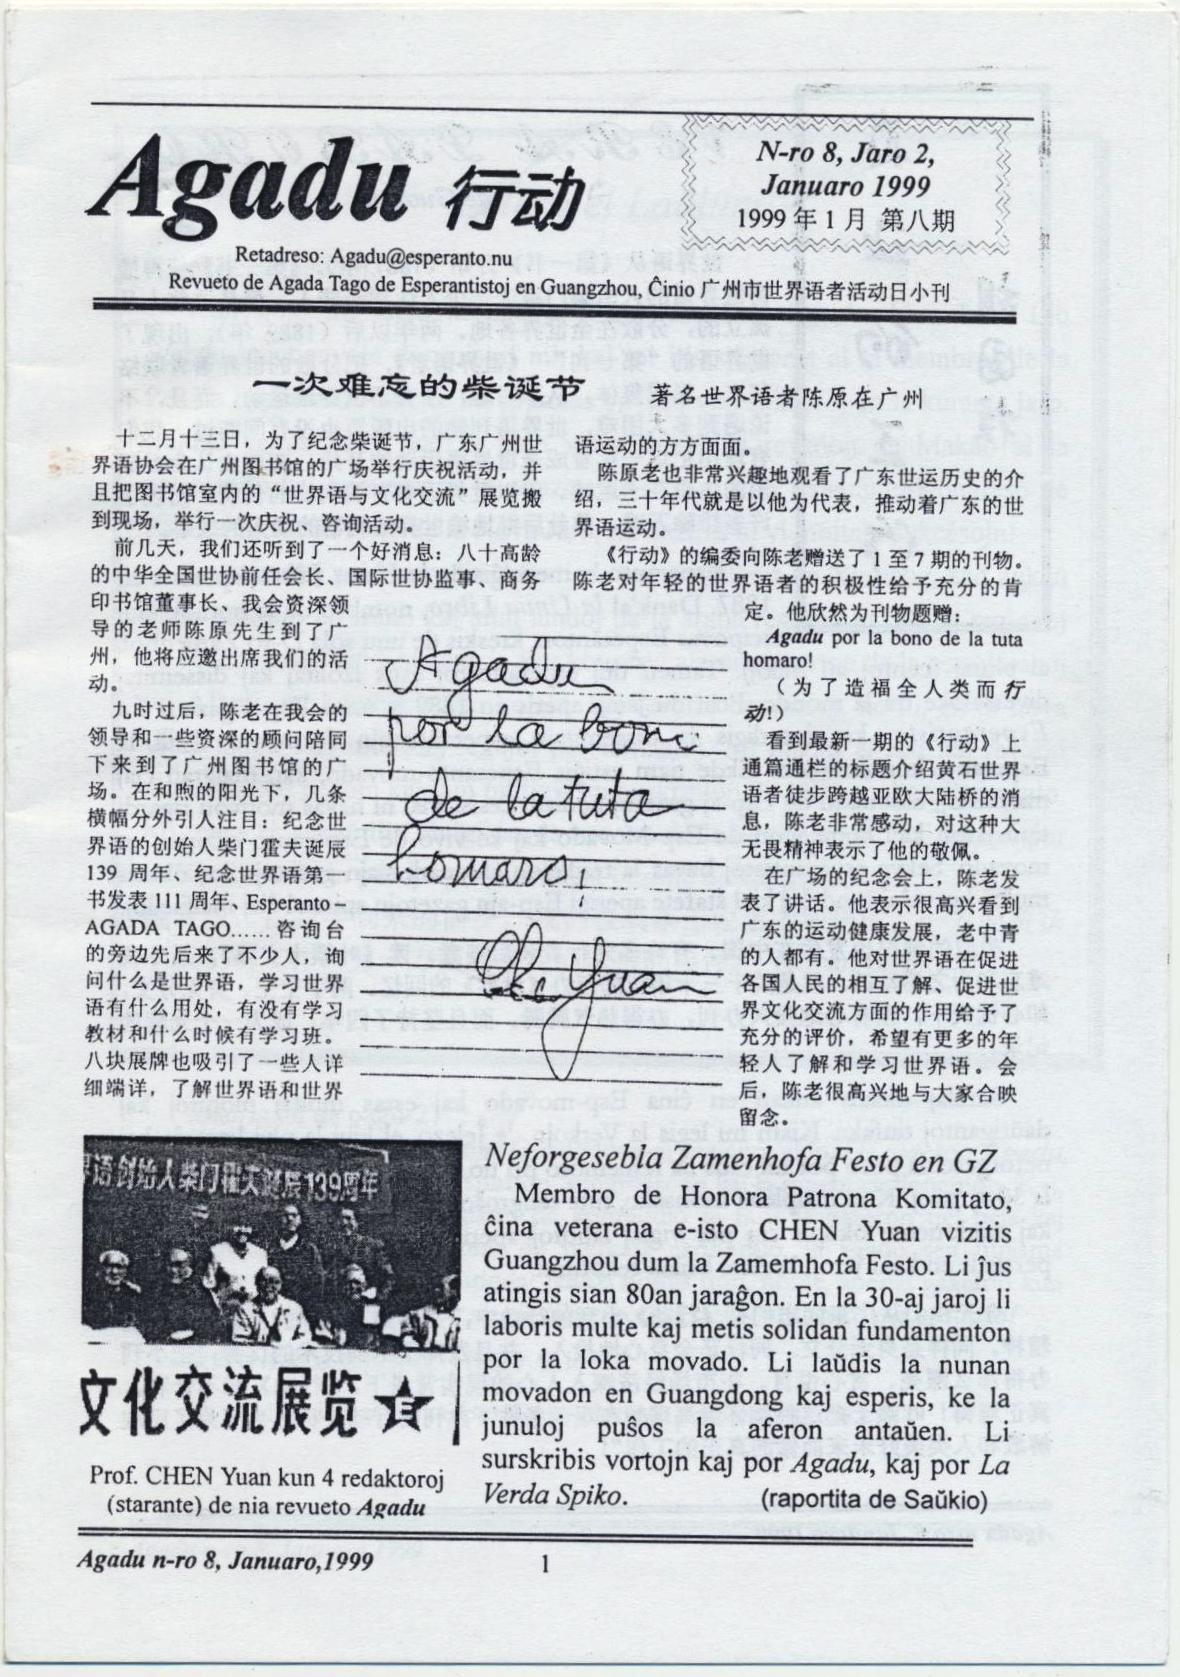 Agadu 行动
N-ro 8, Jaro 2,
Januaro 1999
1999 年 1 月 第八期
Retadreso: Agadu@esperanto.nu
Revueto de Agada Tago de Esperantistoj en Guangzhou, Ĉinio 广州市世界语者活动日小刊
一次难忘的柴诞节
著名世界语者陈原在广州
十二月十三日，为了纪念柴诞节，广东广州世
界语协会在广州图书馆的广场举行庆祝活动，并
且把图书馆室内的“世界语与文化交流”展览搬
到现场，举行一次庆祝、咨询活动。
前几天，我们还听到了一个好消息：八十高龄
的中华全国世协前任会长、国际世协监事、商务
印书馆董事长、我会资深领
导的老师陈原先生到了广
州，他将应邀出席我们的活
动。
九时过后，陈老在我会的
领导和一些资深的顾问陪同
下来到了广州图书馆的广
场。在和煦的阳光下，几条
横幅分外引人注目：纪念世
界语的创始人柴门霍夫诞辰
139 周年、纪念世界语第一
书发表 111 周年、Esperanto -
AGADA TAGO……咨询台
的旁边先后来了不少人，询
问什么是世界语，学习世界
语有什么用处，有没有学习
教材和什么时候有学习班。
八块展牌也吸引了一些人详
细端详，了解世界语和世界
语运动的方方面面。
陈原老也非常兴趣地观看了广东世运历史的介
绍，三十年代就是以他为代表，推动着广东的世
界语运动。
《行动》的编委向陈老赠送了 1 至 7 期的刊物。
陈老对年轻的世界语者的积极性给予充分的肯
定。他欣然为刊物题赠：
Agadu por la bono de la tuta
homaro!
（为了造福全人类而行
动!）
看到最新一期的《行动》上
通篇通栏的标题介绍黄石世界
语者徒步跨越亚欧大陆桥的消
息，陈老非常感动，对这种大
无畏精神表示了他的敬佩。
在广场的纪念会上，陈老发
表了讲话。他表示很高兴看到
广东的运动健康发展，老中青
的人都有。他对世界语在促进
各国人民的相互了解、促进世
界文化交流方面的作用给予了
充分的评价，希望有更多的年
轻人了解和学习世界语。会
后，陈老很高兴地与大家合映
留念。
Agadu
por la bono
de la tuta
homaro!
Chen Yuan
界语创始人柴门霍夫诞辰139周年
文化交流展览
E
Prof. CHEN Yuan kun 4 redaktoroj
(starante) de nia revueto Agadu
Neforgesebla Zamenhofa Festo en GZ
Membro de Honora Patrona Komitato,
ĉina veterana e-isto CHEN Yuan vizitis
Guangzhou dum la Zamemhofa Festo. Li jus
atingis sian 80an jaraĝon. En la 30-aj jaroj li
laboris multe kaj metis solidan fundamenton
por la loka movado. Li laŭdis la nunan
movadon en Guangdong kaj esperis, ke la
junuloj puŝos la aferon antaŭen. Li
surskribis vortojn kaj por Agadu, kaj por La
Verda Spiko. (raportita de Saŭkio)
Agadu n-ro 8, Januaro,1999
1